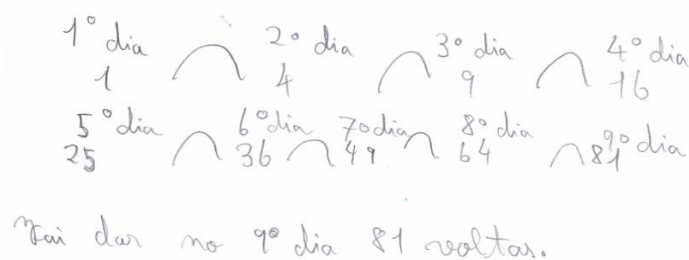 1º dia 2º dia 3º dia 4º dia
1 4 9 16
5º dia 6º dia 7º dia 8º dia 9º dia
25 36 49 64 81
Vai dar no 9º dia 81 voltas.